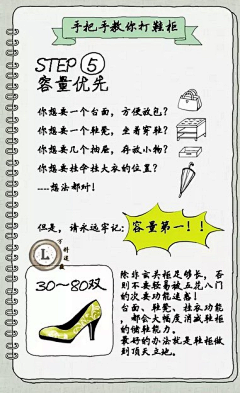 手把手教你打鞋柜
STEP ⑤
容量优先
你想要一个台面，方便放包？
你想要一个鞋凳，坐着穿鞋？
你想要几个抽屉，存放小物？
你想要挂伞挂大衣的位置？
----想法都对！
但是，请永远牢记：
容量第一！！
L
30～80双
除非玄关柜足够长，否
则不要轻易被五花八门
的次要功能迷惑！
台面、鞋凳、挂衣功能
，都会大幅度消减鞋柜
的储鞋能力。
最好的办法就是鞋柜做
到顶天立地。